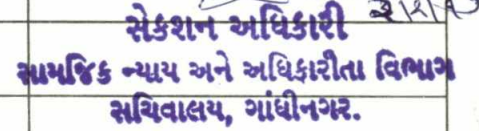 સેકશન અધિકારી
સામાજિક ન્યાય અને અધિકારીતા વિભાગ
સચિવાલય, ગાંધીનગર.